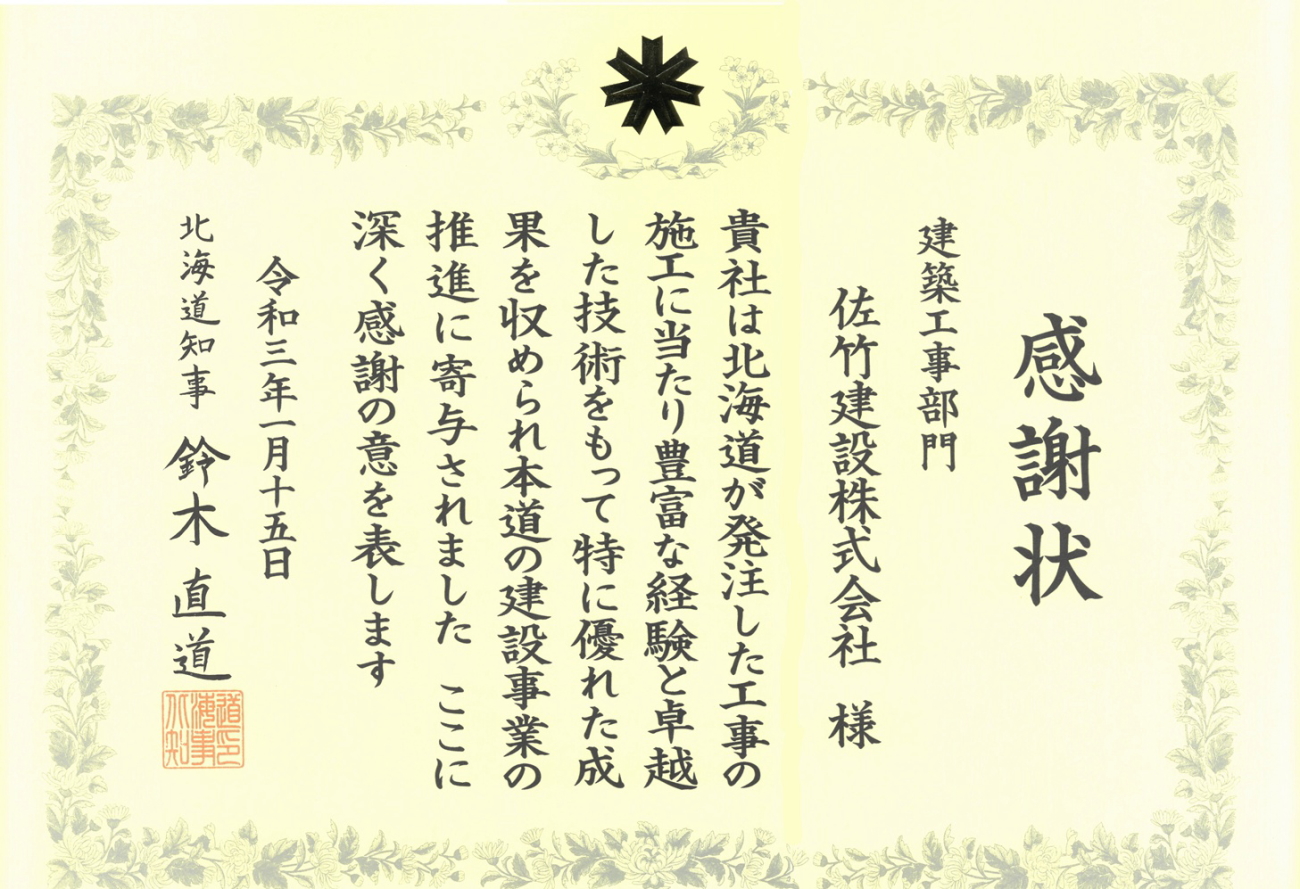 感謝状
建築工事部門
佐竹建設株式会社 様
貴社は北海道が発注した工事の
施工に当たり豊富な経験と卓越
した技術をもって特に優れた成
果を収められ本道の建設事業の
推進に寄与されました ここに
深く感謝の意を表します
令和三年一月十五日
北海道知事 鈴木 直道
道印
海事
北知